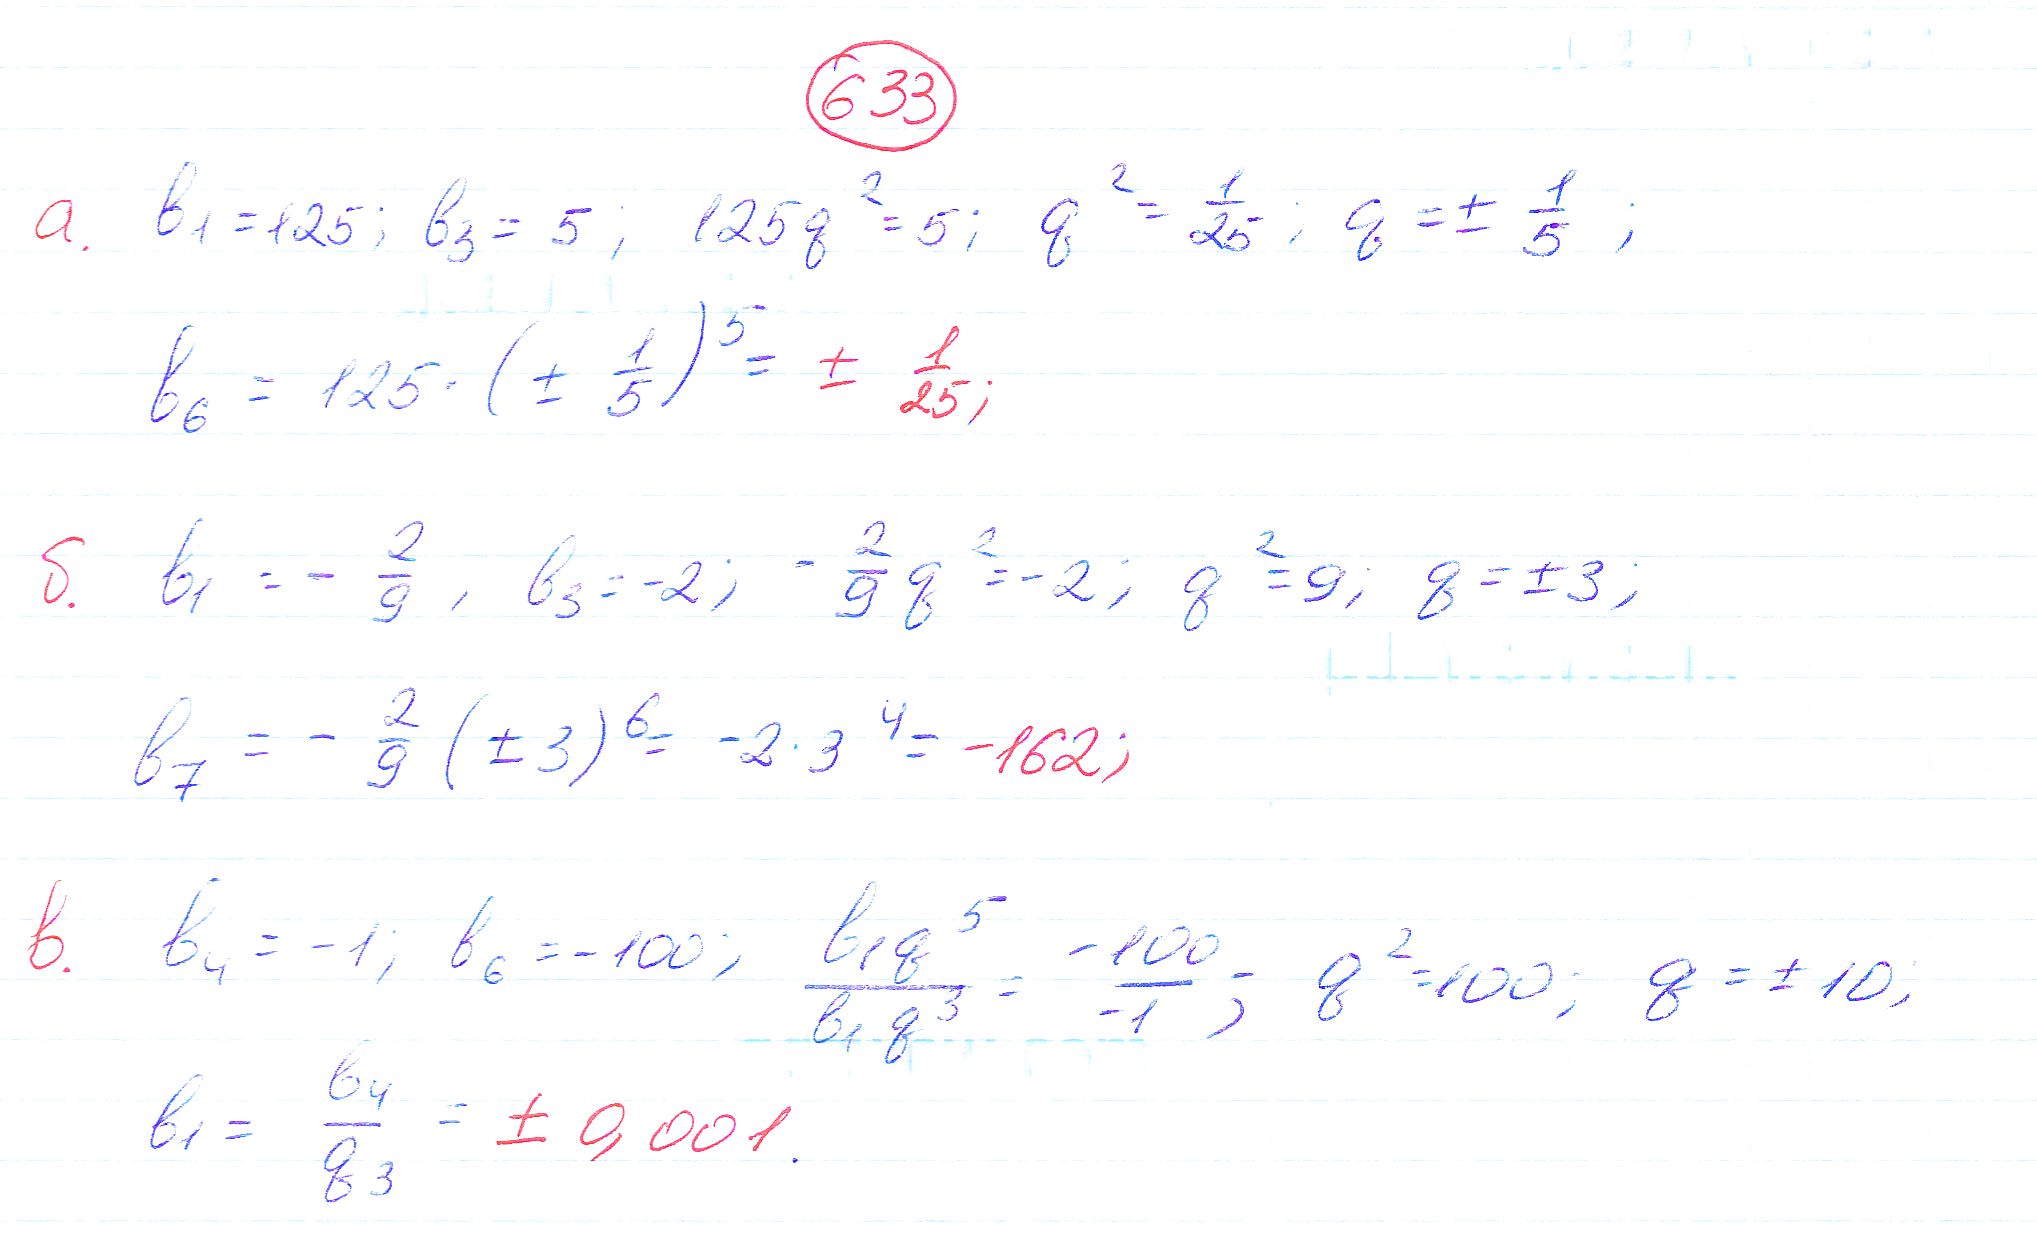 633
а. b₁ = 125; b₃ = 5; 125q² = 5; q² = 1/25; q = ± 1/5;
b₆ = 125 · (± 1/5)⁵ = ± 1/25;
б. b₁ = - 2/9, b₃ = -2; - 2/9 q² = -2; q² = 9; q = ±3;
b₇ = - 2/9 (±3)⁶ = -2 · 3⁴ = -162;
в. b₄ = -1; b₆ = -100; b₁q⁵/b₁q³ = -100/-1; q² = 100; q = ±10;
b₁ = b₄/q₃ = ± 0,001.